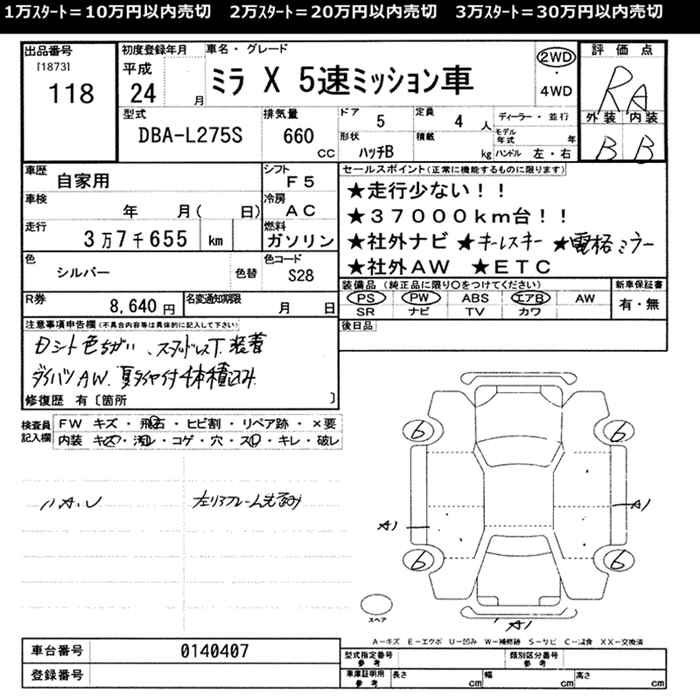 1万ｽﾀｰﾄ＝10万円以内売切　2万ｽﾀｰﾄ＝20万円以内売切　3万ｽﾀｰﾄ＝30万円以内売切
出品番号
[1873]
118
初度登録年月
平成
24 月
車名・グレード
ミラ X 5速ミッション車
2WD
・
4WD
評価点
RA
外装 内装
B B
型式
DBA-L275S
排気量
660
CC
ドア 5
定員 4 人
ディーラー・並行
形状 ハッチB
積載 kg
モデル年式 年
ハンドル 左・右
車歴
自家用
シフト
F5
車検
年 月( 日)
冷房
AC
走行
3万7千655 km
燃料
ガソリン
色
シルバー
色替
色コード
S28
R券
8,640 円
名変通知期限
月 日
セールスポイント(正常に機能するものに限ります)
★走行少ない！！
★37000km台！！
★社外ナビ ★キーレスキー ★電格ミラー
★社外AW ★ETC
装備品 (純正品に限り○をつけてください)
新車保証書
PS PW ABS エアB AW
SR ナビ TV カワ
有・無
後日品
注意事項申告欄(不具合内容等は具体的に記入して下さい)
ダイハツAW.夏タイヤ付4本積込み
修復歴 有〔箇所 〕
検査員
記入欄
FW キズ・飛石・ヒビ割・リペア跡・×要
内装 キズ・汚れ・コゲ・穴・スレ・キレ・破レ
6
6
A1
A1
6
6
A1
スペア
A－キズ E－エクボ U－凹み W－補修跡 S－サビ C－腐食 XX－交換済
車台番号
0140407
登録番号
型式指定番号
参考
類別区分番号
参考
車庫証明用
参考
長さ cm
幅 cm
高さ cm